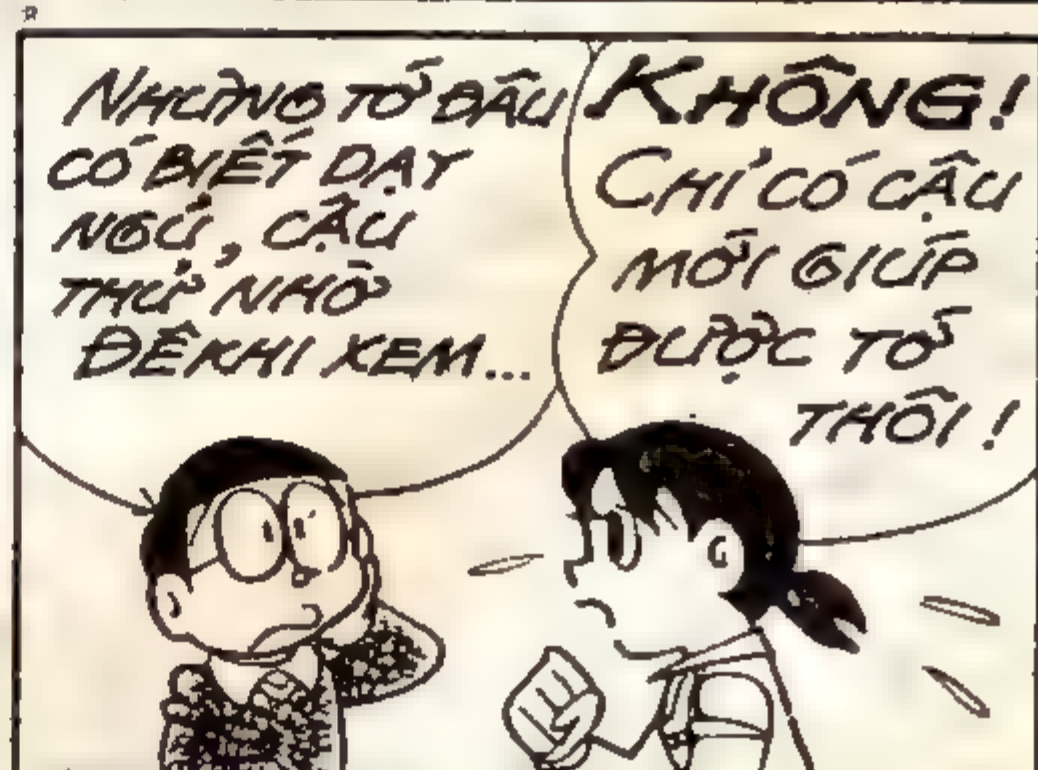 NHƯNG TỚ ĐÂU
CÓ BIẾT DẠY
NGỦ, CẬU
THỬ NHỜ
ĐÊKHI XEM...
KHÔNG!
CHỈ CÓ CẬU
MỚI GIÚP
ĐƯỢC TỚ
THÔI!